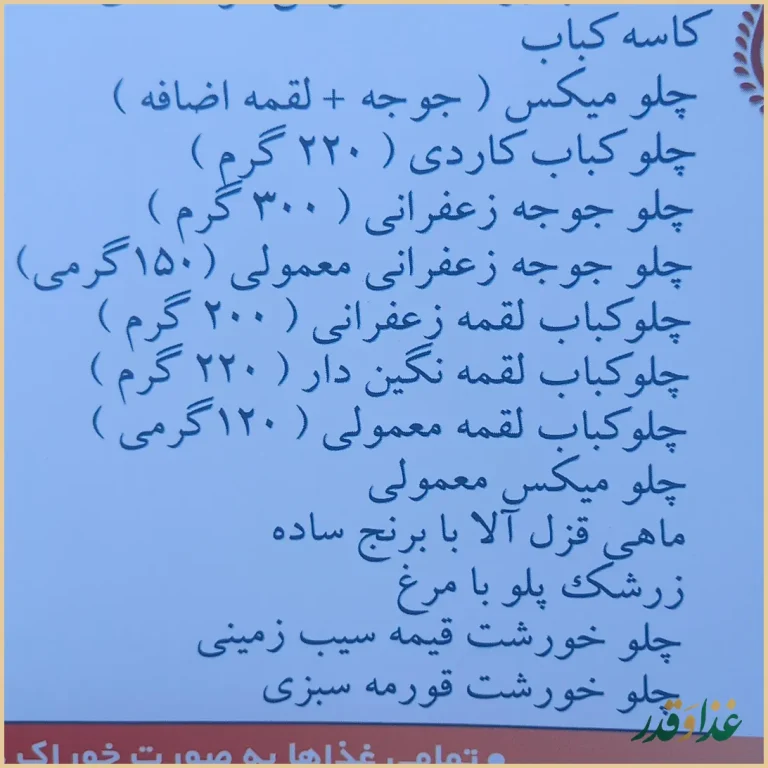 کاسه کباب
چلو میکس ( جوجه + لقمه اضافه )
چلو کباب کاردی ( ۲۲۰ گرم )
چلو جوجه زعفرانی ( ۳۰۰ گرم )
چلو جوجه زعفرانی معمولی (۱۵۰گرمی)
چلوکباب لقمه زعفرانی ( ۲۰۰ گرم )
چلوکباب لقمه نگین دار ( ۲۲۰ گرم )
چلوکباب لقمه معمولی ( ۱۲۰گرمی )
چلو میکس معمولی
ماهی قزل آلا با برنج ساده
زرشک پلو با مرغ
چلو خورشت قیمه سیب زمینی
چلو خورشت قورمه سبزی
غذا و قدر
• تمامی غذاها به صورت خوراک